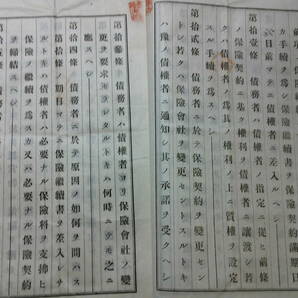 六日前マテニ債權者ニ差入ルヘシ
第拾壹條 債務者ハ債權者ノ指定ニ從ヒ前條
ノ保險契約ニ基ク權利ヲ債權者ニ讓渡シ若
クハ債權者ノ爲其ノ權利ノ上ニ質權ヲ設定
スル手續ヲ爲スヘシ
第拾貳條 債務者ニ於テ保險契約ヲ變更セン
トシ若クハ保險會社ヲ變更セントスルトキ
ハ豫メ債權者ニ通知シ其ノ承諾ヲ受クヘシ
第拾參條 債務者ハ債權者ヨリ保險會社ノ變
更ヲ要求セラレタルトキハ何時ニテモ之ニ
應スヘシ
第拾四條 債務者ニ於テ原因ノ如何ヲ問ハス
第拾條ノ期日マテニ保險繼續書ヲ差入レサ
ルトキハ債權者ハ必要ナル保險料ヲ支拂ヒ
保險ノ繼續ヲ爲スカ又ハ必要ナル保險契約
ヲ締結スヘシ